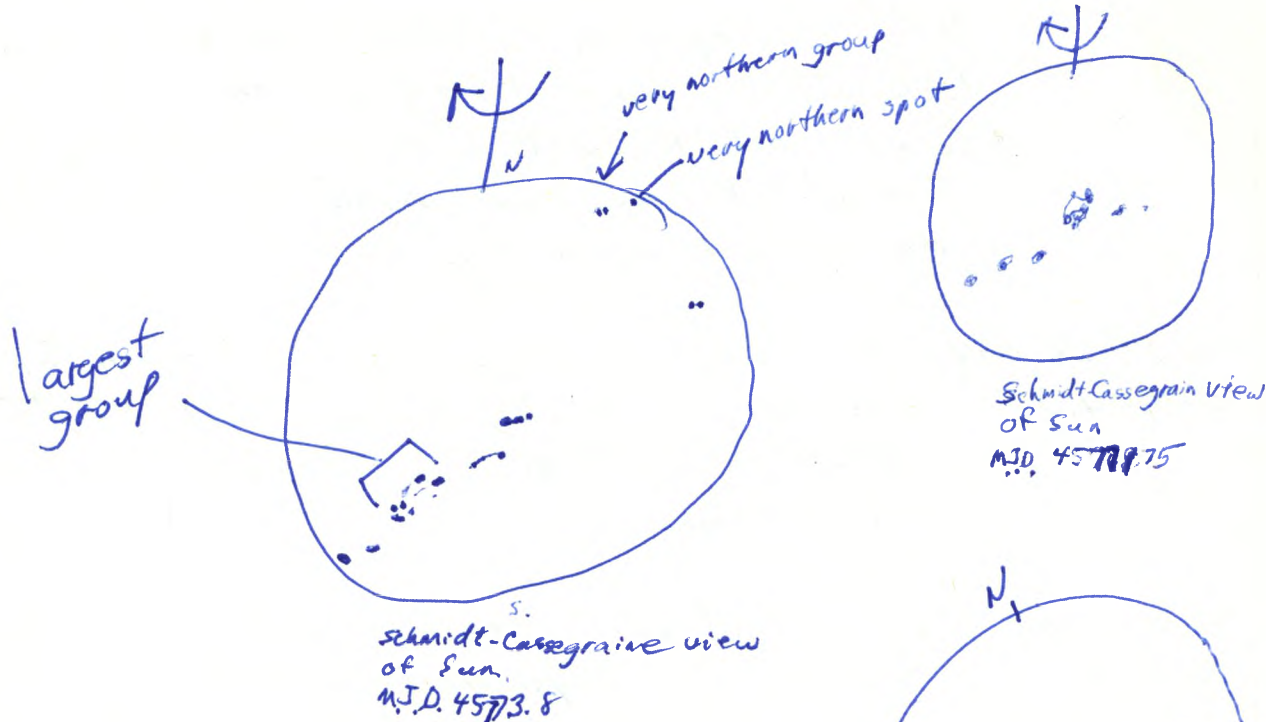 very northern group
very northern spot
N
largest
group
S.
Schmidt-Cassegraine view
of Sun
M.J.D. 4573.8
Schmidt-Cassegrain View
of Sun
M.J.D.
N